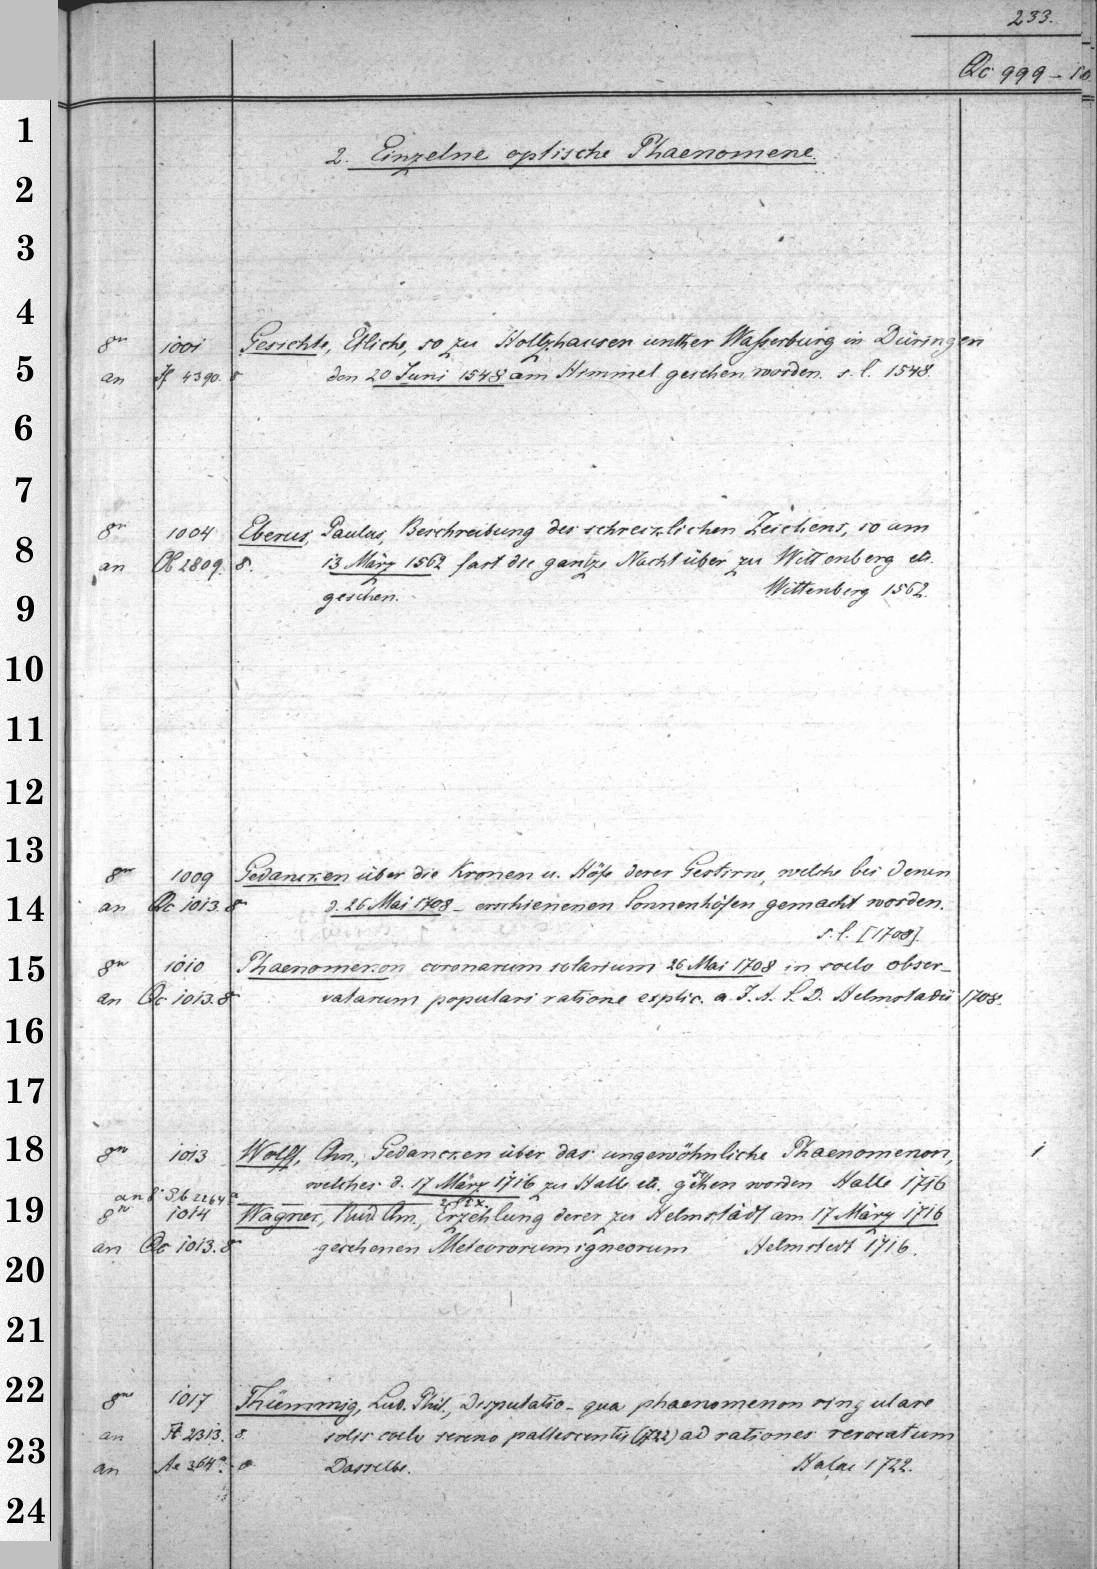 233.
Qc 999 – 10
2. Einzelne optische Phaenomene.
8° 1001 Gesichte, Etliche, so zu Holtzhausen unther Wasserburg in Düringen
an 4390. 8 den 20 Juni 1548 am Himmel gesehen worden. s. l. 1548.
8° 1004 Eberus, Paulus, Beschreibung des schrecklichen Zeichens, so am
an 2809. 8. 13 März 1562 fast die gantze Nacht über zu Wittenberg etc.
gesehen. Wittenberg 1562.
8° 1009 Gedancken über die Kronen u. Höfe derer Gestirne, welche bei denen
an Qc 1013. 8° d. 26 Mai 1708 – erschienenen Sonnenhöfen gemacht worden.
s. l. [1708].
8° 1010 Phaenomenon coronarum solarium 26 Mai 1708 in coelo obser-
an Qc 1013. 8° vatarum populari ratione explic. a J. A. S. D. Helmstadii 1708.
8° 1013 Wolff, Chn., Gedancken über das ungewöhnliche Phaenomenon, 1
welches d. 17 März 1716 zu Halle etc. gesehen worden Halle 1716
an 8° Sb 2264 a 2 Ex.
8° 1014 Wagner, Rud. Chn., Erzehlung derer zu Helmstädt am 17 März 1716
an Qc 1013. 8° gesehenen Meteororum igneorum Helmstedt 1716.
8° 1017 Thümmig, Lud. Phil., Disputatio – qua phaenomenon singulare
an 2313. 8. solis coelo sereno pallescentis (1722) ad rationes revocatum
an Ae 364 a. 8 Dasselbe. Halae 1722.
1
2
3
4
5
6
7
8
9
10
11
12
13
14
15
16
17
18
19
20
21
22
23
24